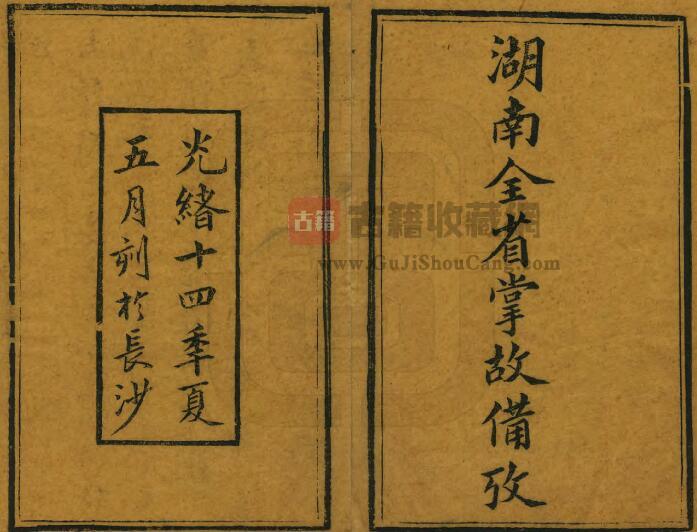 湖南全省掌故備攷
光緒十四秊夏
五月刻於長沙
古籍
古籍收藏網
www.GuJiShouCang.com